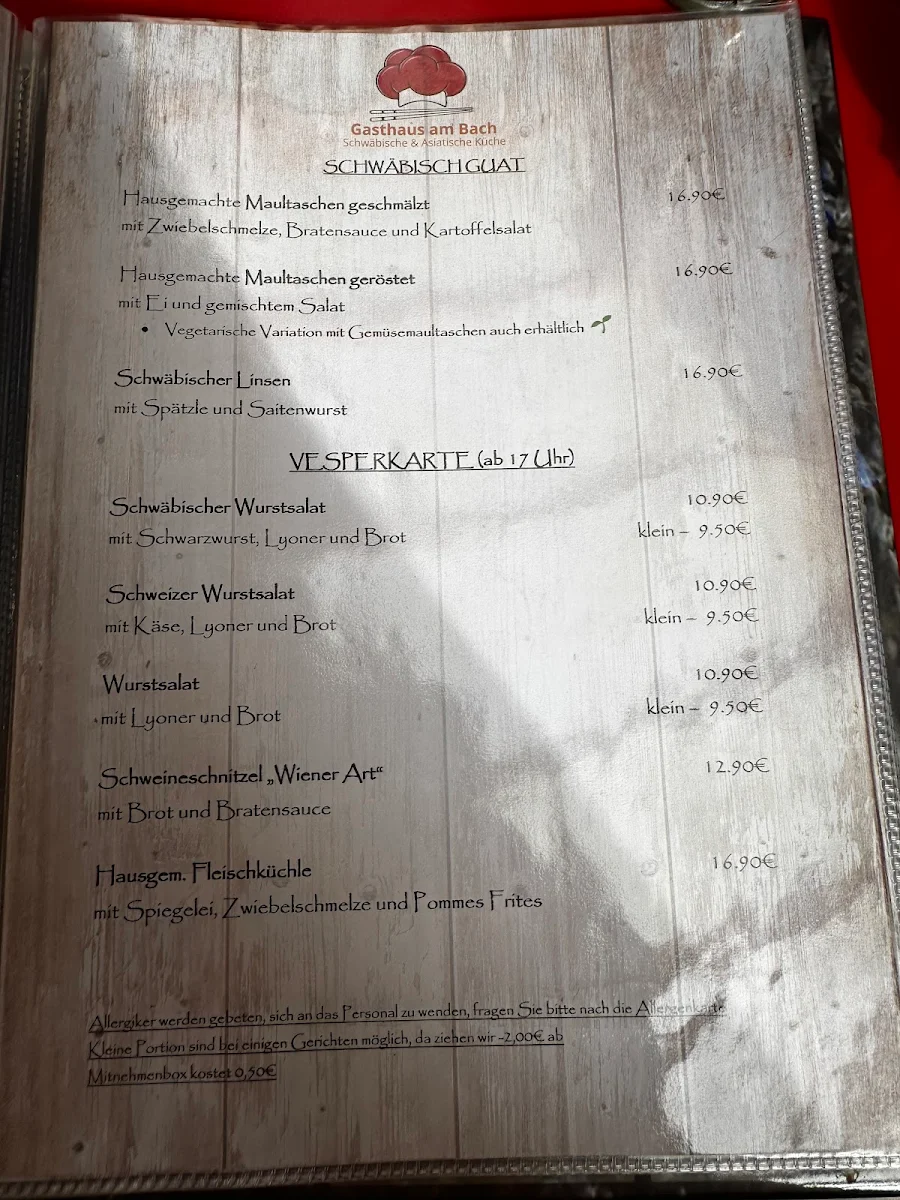 Gasthaus am Bach
Schwäbische & Asiatische Küche
SCHWÄBISCH GUAT
Hausgemachte Maultaschen geschmälzt 16.90€
mit Zwiebelschmelze, Bratensauce und Kartoffelsalat
Hausgemachte Maultaschen geröstet 16.90€
mit Ei und gemischtem Salat
• Vegetarische Variation mit Gemüsemaultaschen auch erhältlich
Schwäbischer Linsen 16.90€
mit Spätzle und Saitenwurst
VESPERKARTE (ab 17 Uhr)
Schwäbischer Wurstsalat 10.90€
mit Schwarzwurst, Lyoner und Brot klein – 9.50€
Schweizer Wurstsalat 10.90€
mit Käse, Lyoner und Brot klein – 9.50€
Wurstsalat 10.90€
mit Lyoner und Brot klein – 9.50€
Schweineschnitzel „Wiener Art“ 12.90€
mit Brot und Bratensauce
Hausgem. Fleischküchle 16.90€
mit Spiegelei, Zwiebelschmelze und Pommes Frites
Allergiker werden gebeten, sich an das Personal zu wenden, fragen Sie bitte nach die Allergenkarte
Kleine Portion sind bei einigen Gerichten möglich, da ziehen wir -2,00€ ab
Mitnehmenbox kostet 0,50€